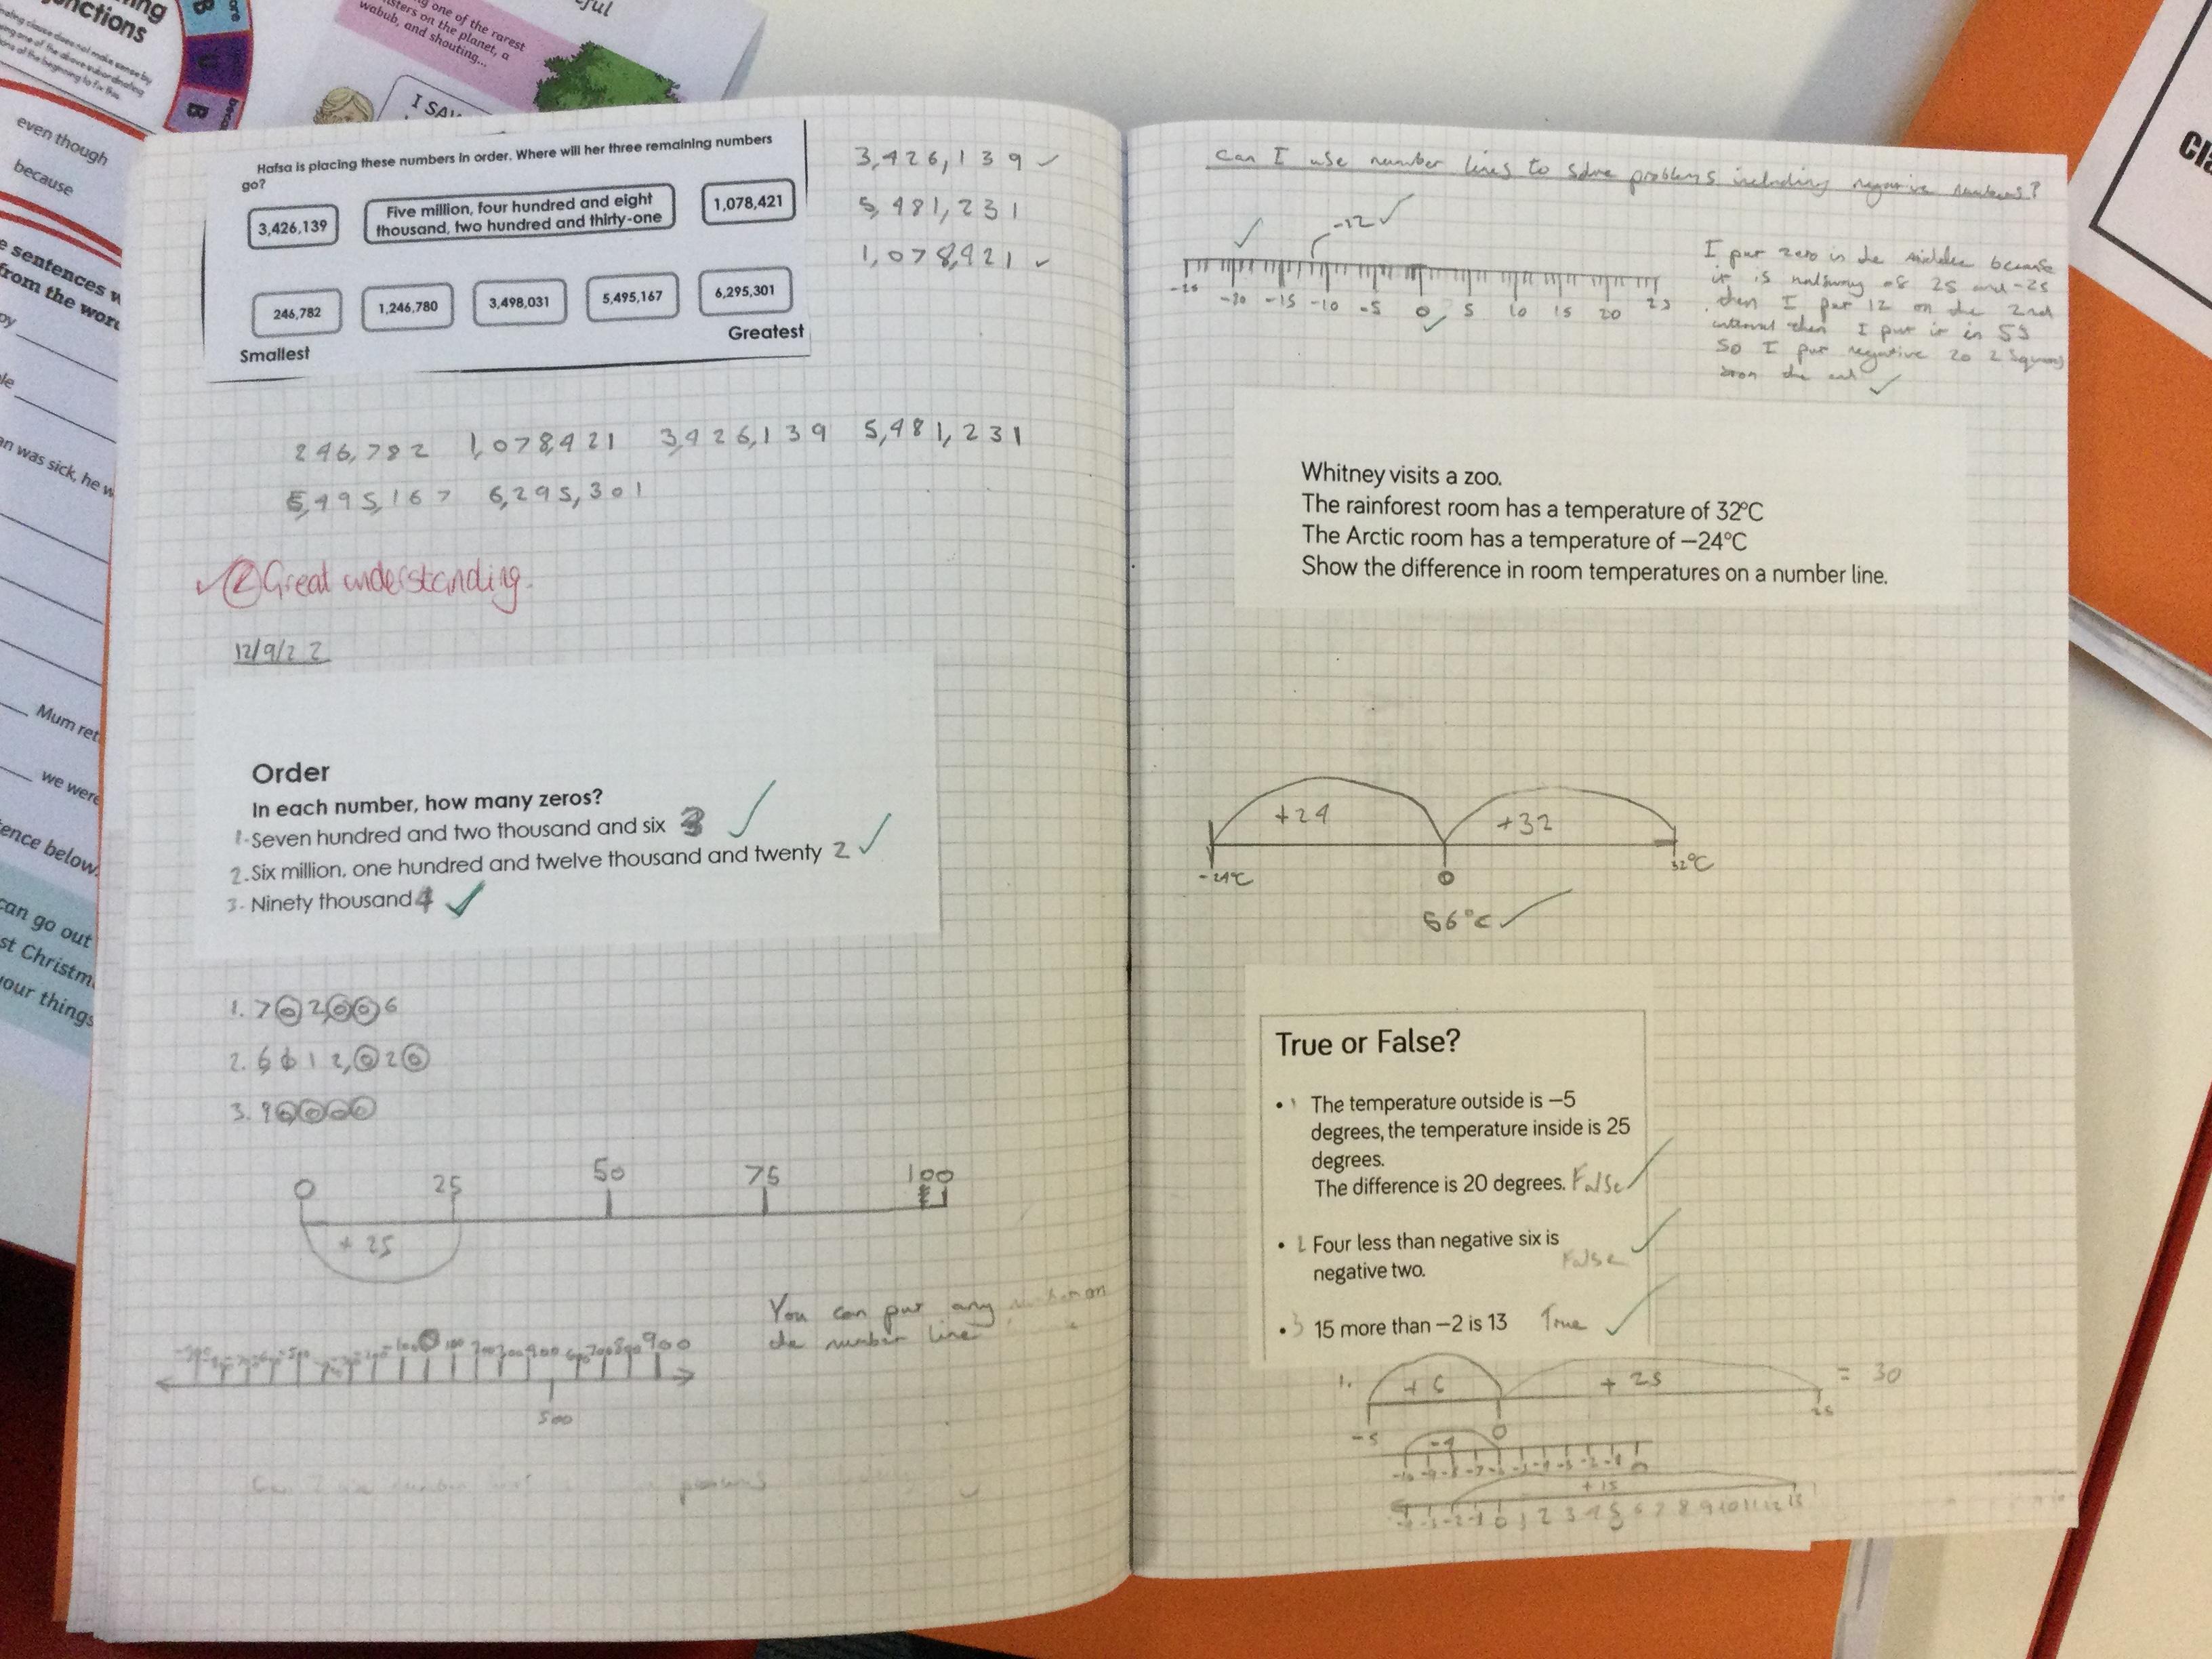 even though
because
I SAW
one of the rarest
on the planet, a
wabub, and shouting...
Hafsa is placing these numbers in order. Where will her three remaining numbers
go?
3,426,139
Five million, four hundred and eight
thousand, two hundred and thirty-one
1,078,421
246,782
1,246,780
3,498,031
5,495,167
6,295,301
Smallest
Greatest
3,426,139
5,481,231
1,078,421
246,782 1,078,421 3,426,139 5,481,231
5,495,167 6,295,301
2 Great understanding.
12/9/22
Order
In each number, how many zeros?
1. Seven hundred and two thousand and six 3
2. Six million, one hundred and twelve thousand and twenty 2
3. Ninety thousand 4
1. 702,006
2. 6,112,020
3. 90000
0 25 50 75 100
+ 25
100 900
500
You can put any number on
the number line
Can I use number lines to solve problems including negative numbers?
-12
-25 -20 -15 -10 -5 0 5 10 15 20 25
I put zero in the middle because
it is halfway of 25 and -25
then I put 12 on the 2nd
interval then I put it in 5s
So I put negative 20 2 squares
from the end
Whitney visits a zoo.
The rainforest room has a temperature of 32°C
The Arctic room has a temperature of −24°C
Show the difference in room temperatures on a number line.
+24 +32
-24°C 0 32°C
56°C
True or False?
• 1 The temperature outside is −5
degrees, the temperature inside is 25
degrees.
The difference is 20 degrees. False
• 2 Four less than negative six is
negative two. False
• 3 15 more than −2 is 13 True
1. + 25 = 30
-5 0 25
-4
-10 -9 -8 -7 -6 -5 -4 -3 -2 -1 0
+ 15
-4 -3 -2 -1 0 1 2 3 4 5 6 7 8 9 10 11 12 13
sentences
from the word
an was sick, he w
Mum ret
we were
tence below.
can go out
st Christm
your things